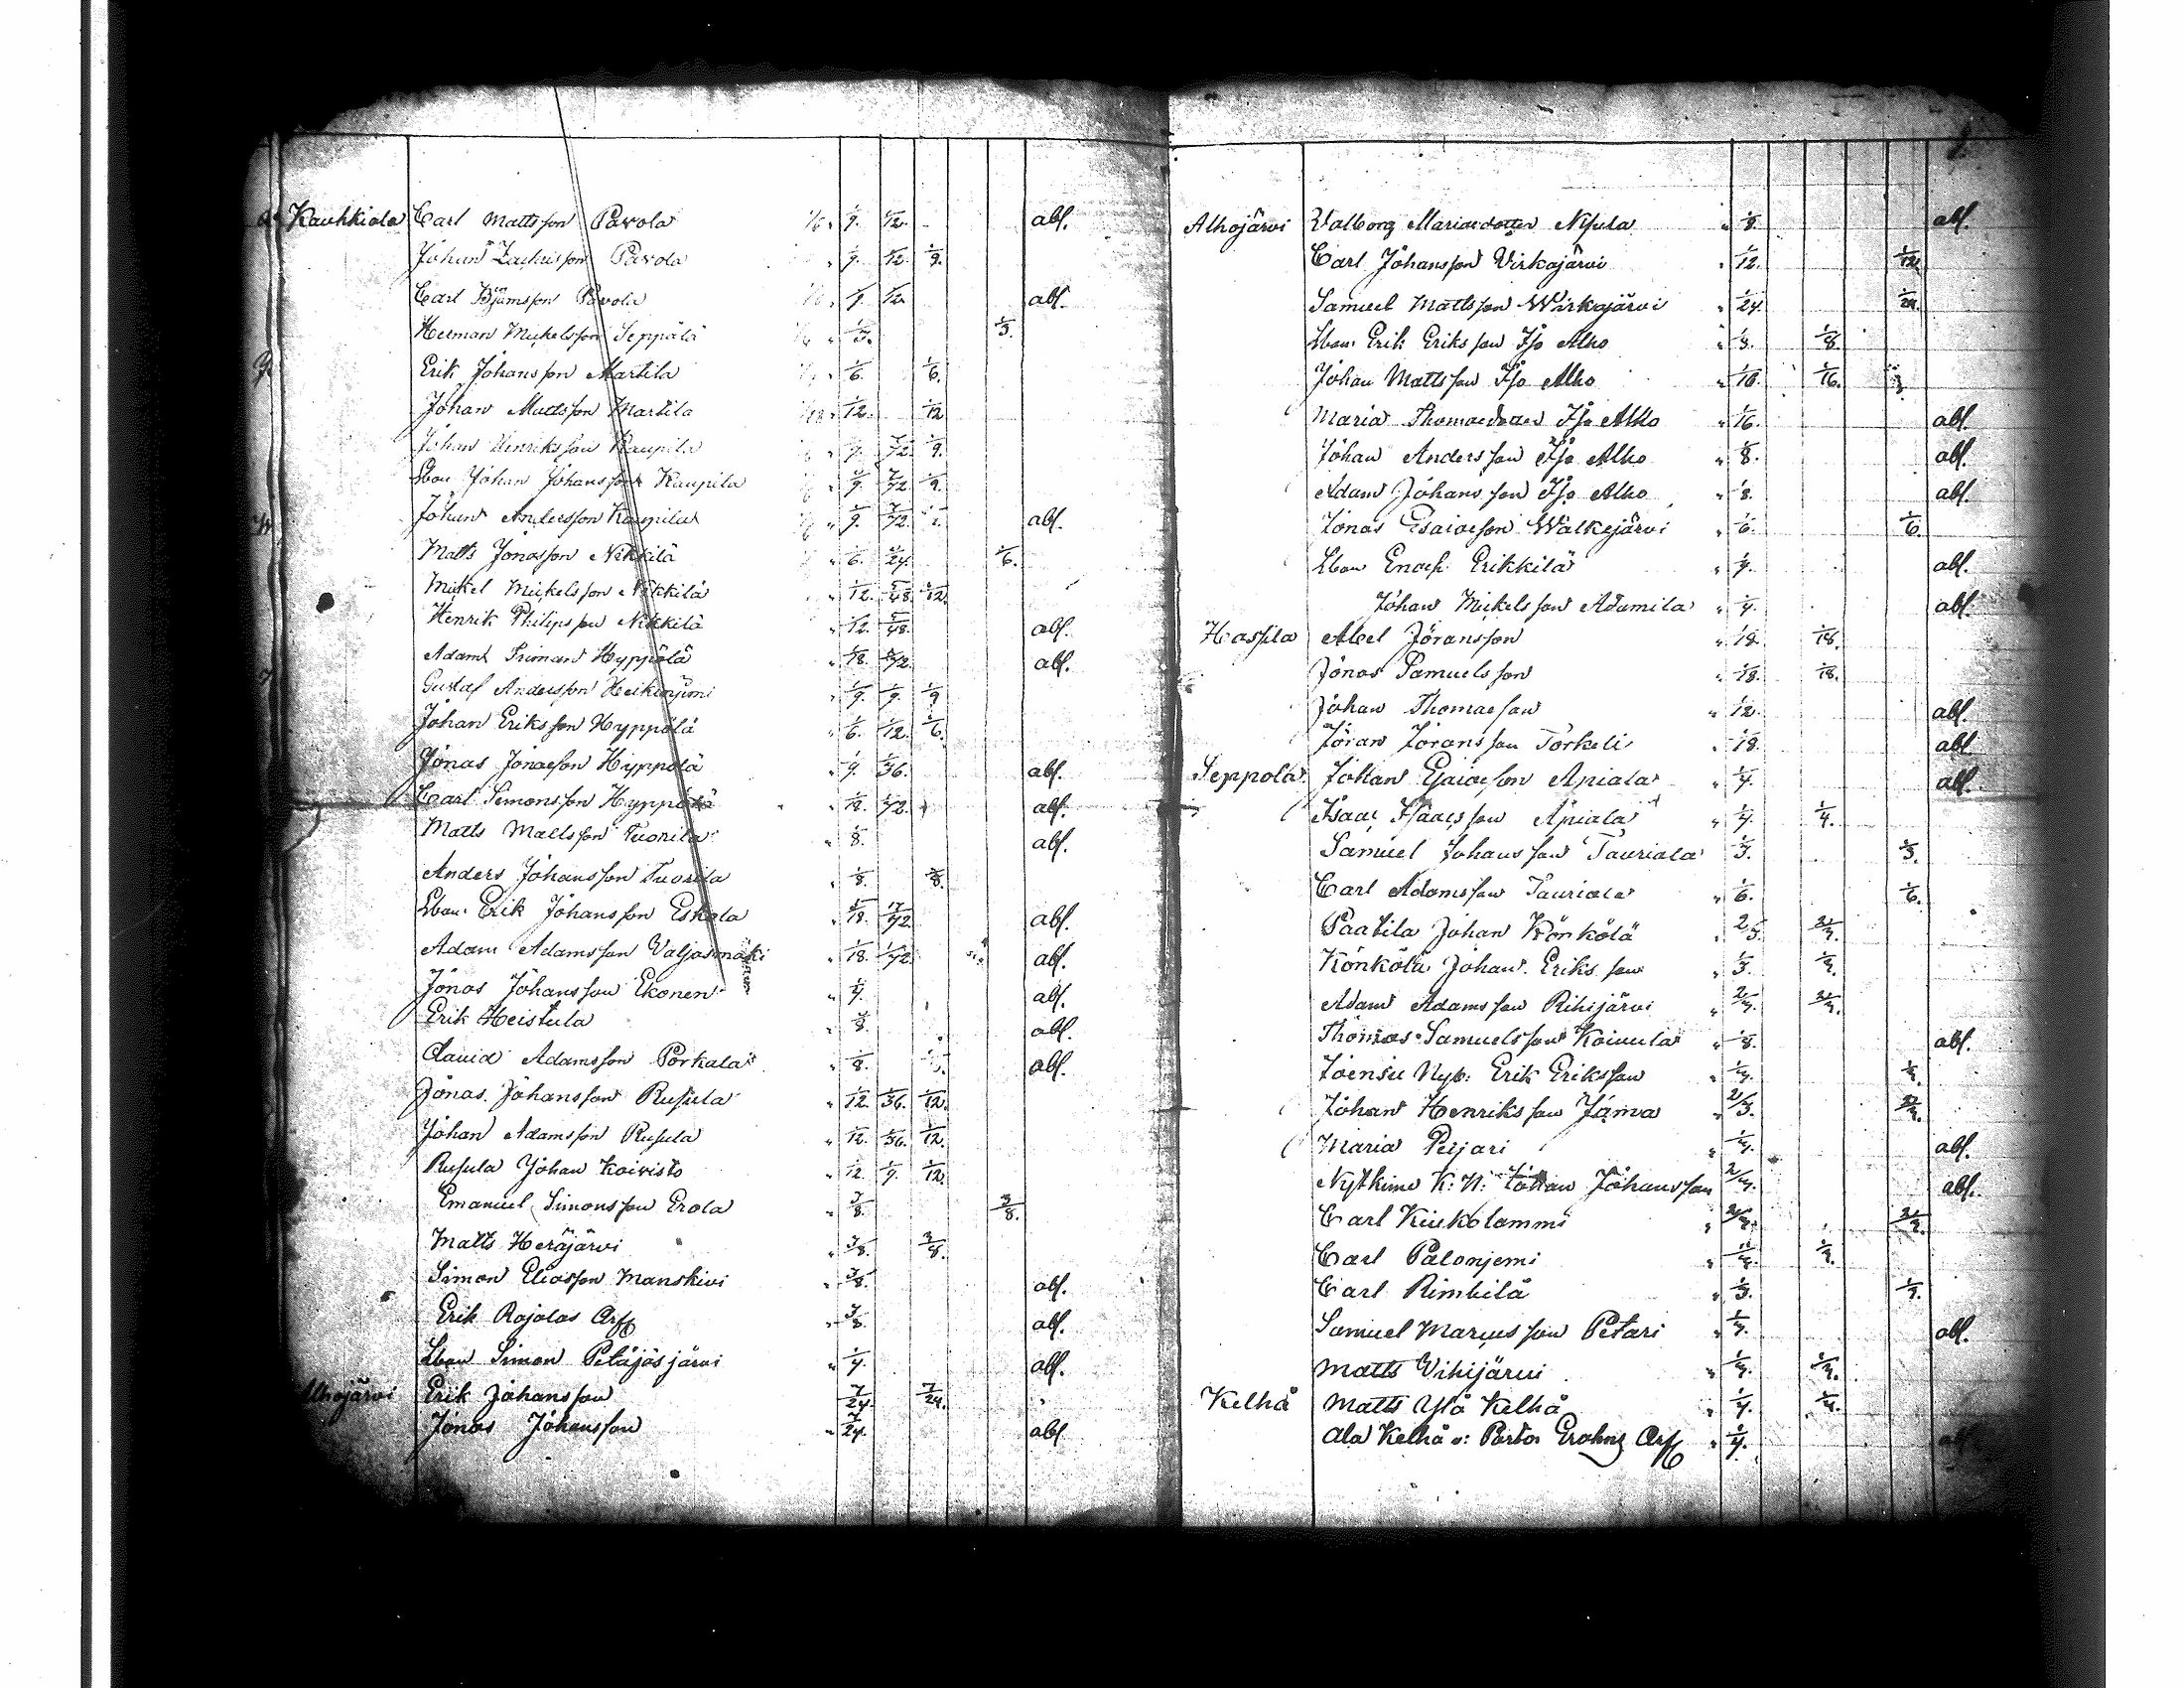 Kauhkiala Carl Mattsson Pavola 1/6 " 1/9. 1/12. abs.
Johan Zachrisson Pavola " 1/9. 1/12. 1/9.
Carl Bjämsson Pavola 1/6 " 1/9. 1/12. abs.
Herman Mickelsson Seppälä " 1/3. 1/3.
Erik Johansson Martila " 1/6. 1/6.
Johan Mattsson Martila 1/12. 1/12
Johan Henriksson Kaupila " 1/9. 7/72 1/9.
Lbon Johan Johansson Kaupila " 2/9. 7/72 2/9.
Johan Andersson Kaupila " 2/9. 7/72. abs.
Matts Jonasson Nikkilä " 1/6. 5/24. 1/6.
Mickel Mickelsson Nikkilä " 1/12. 5/48 1/12.
Henrik Philipsson Nikkilä " 1/12. 5/48. abs.
Adam Friman Hyppölä " 1/18. 5/72. abs.
Gustaf Andersson Heikinjemi " 1/9. 1/9. 1/9
Johan Eriksson Hyppölä " 1/6. 1/12. 1/6.
Jonas Jonaeson Hyppölä " 1/9. 1/36. abs.
Carl Simonsson Hyppölä " 1/18. 1/72. abs.
Matts Mattsson Tuorila " 1/8. abs.
Anders Johansson Tuorila " 3/8. 3/8.
Lbon Erik Johansson Eskola " 5/18. 17/72 abs.
Adam Adamsson Valjasmäki " 1/18. 1/72 abs.
Jonas Johansson Ekonen " 1/4. abs.
Erik Heistula " 3/8. abs.
David Adamsson Porkala " 1/8. abs.
Jonas Johansson Rusula " 1/12. 1/36. 1/12.
Johan Adamsson Rusula " 1/12. 1/36. 1/12.
Rusula Johan Koivisto " 1/12. 1/9. 1/12.
Emanuel Simonsson Erola " 3/8. 3/8.
Matts Heräjärvi " 3/8. 3/8.
Simon Eliasson Manskivi " 3/8. abs.
Erik Rajalas Arfv " 3/8. abs.
Lbon Simon Petäjäsjärvi " 1/4. abs.
Alhojärvi Erik Johansson 7/24. 7/24.
Jonas Johansson " 7/24. abs.
Alhojärvi Valborg Mariaedotter Nisula " 1/8. abs.
Carl Johansson Virkajärvi " 1/12. 1/12.
Samuel Mattsson Wirkajärvi " 1/24. 1/24.
Lbon Erik Eriksson Iso Alho " 1/8. 1/8.
Johan Mattsson Iso Alho " 1/16. 1/16.
Maria Thomaedotter Iso Alho " 1/16. abs.
Johan Andersson Iso Alho " 1/8. abs.
Adam Johansson Iso Alho " 1/8. abs.
Jonas Esaiaeson Walkejärvi " 1/6. 1/6.
Lbon Enoch Erikkilä " 1/4. abs.
Johan Mickelsson Adamila " 1/4. abs.
Hassila Abel Jöransson " 1/18. 1/18.
Jonas Samuelsson " 1/18. 1/18.
Johan Thomaeson " 1/12. abs.
Jöran Joransson Torkeli " 1/18. abs.
Seppola Johan Esaiaeson Apiala " 1/4. abs.
Isaac Isaacsson Apiala " 1/4. 1/4.
Samuel Johansson Tauriala 1/3. 1/3.
Carl Adamsson Tauriala " 1/6. 1/6.
Paatila Johan Könkölä " 2/3. 2/3.
Könkölä Johan Eriksson " 1/3. 1/3.
Adam Adamsson Rihijärvi " 2/3. 2/3.
Thomas Samuelsson Koivula " 1/8. abs.
Joensu Nyb: Erik Eriksson " 1/3. 1/3.
Johan Henriksson Jämä " 2/3. 2/3.
Maria Peijari " 1/3. abs.
Nytkime K: N: Johan Johansson 2/3. abs.
Carl Kiukolammi " 2/3. 2/3.
Carl Palonjemi " 1/3. 1/3.
Carl Rimkilä " 1/3. 1/3.
Samuel Marcusson Petari " 1/3. abs.
Matts Vihijärvi " 1/3. 1/3.
Kelhå Matts Ylä Kelhå " 1/4. 1/4.
Ala Kelhå o: Pastor Erohns Arfv " 1/4. abs.